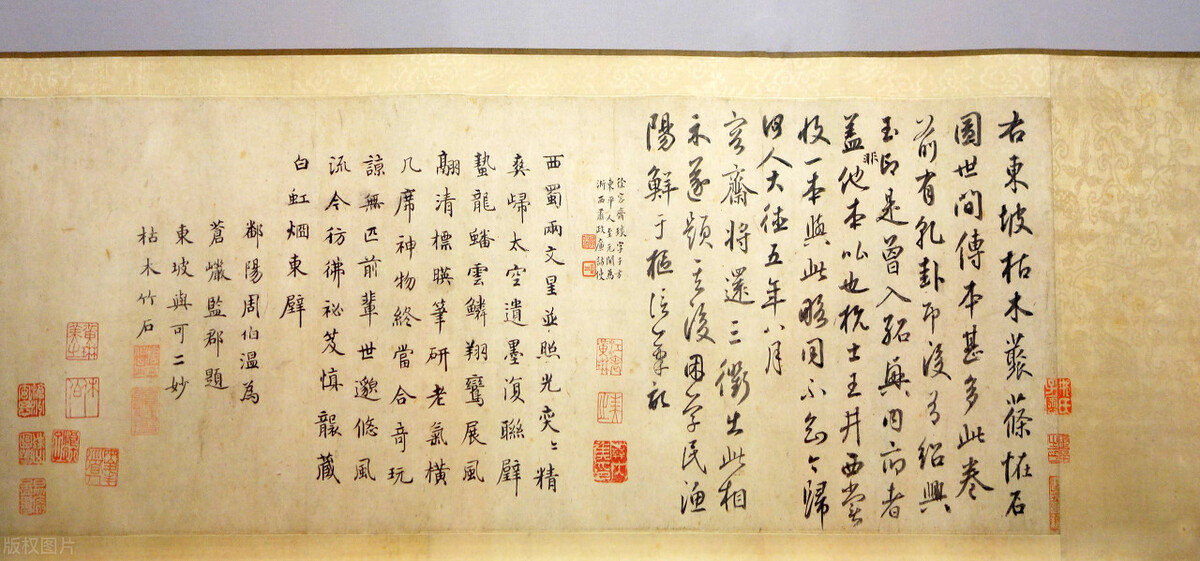 右東坡枯木叢篠怪石
圖世間傳本甚多此卷
前有乳卦印後有紹興
玉印是曾入紹興內府者
蓋非他本比也杭士王井西嘗
收一本與此略同不知今歸
何人大德五年八月
容齋將還三衢出此相
示遂題其後困學民漁
陽鮮于樞
徐容齋琰字子方
東平人至元間為
浙西肅政廉訪使
西蜀兩文星並照光奕〻精
爽歸太空遺墨復聯璧
蟄龍蟠雲鱗翔鸞展風
翮清標暎筆研老氣橫
几席神物終當合奇玩
諒無匹前輩世邈悠風
流今彷彿祕笈慎襲藏
白虹烟東壁
鄱陽周伯溫為
蒼巖監郡題
東坡與可二妙
枯木竹石
版权图片